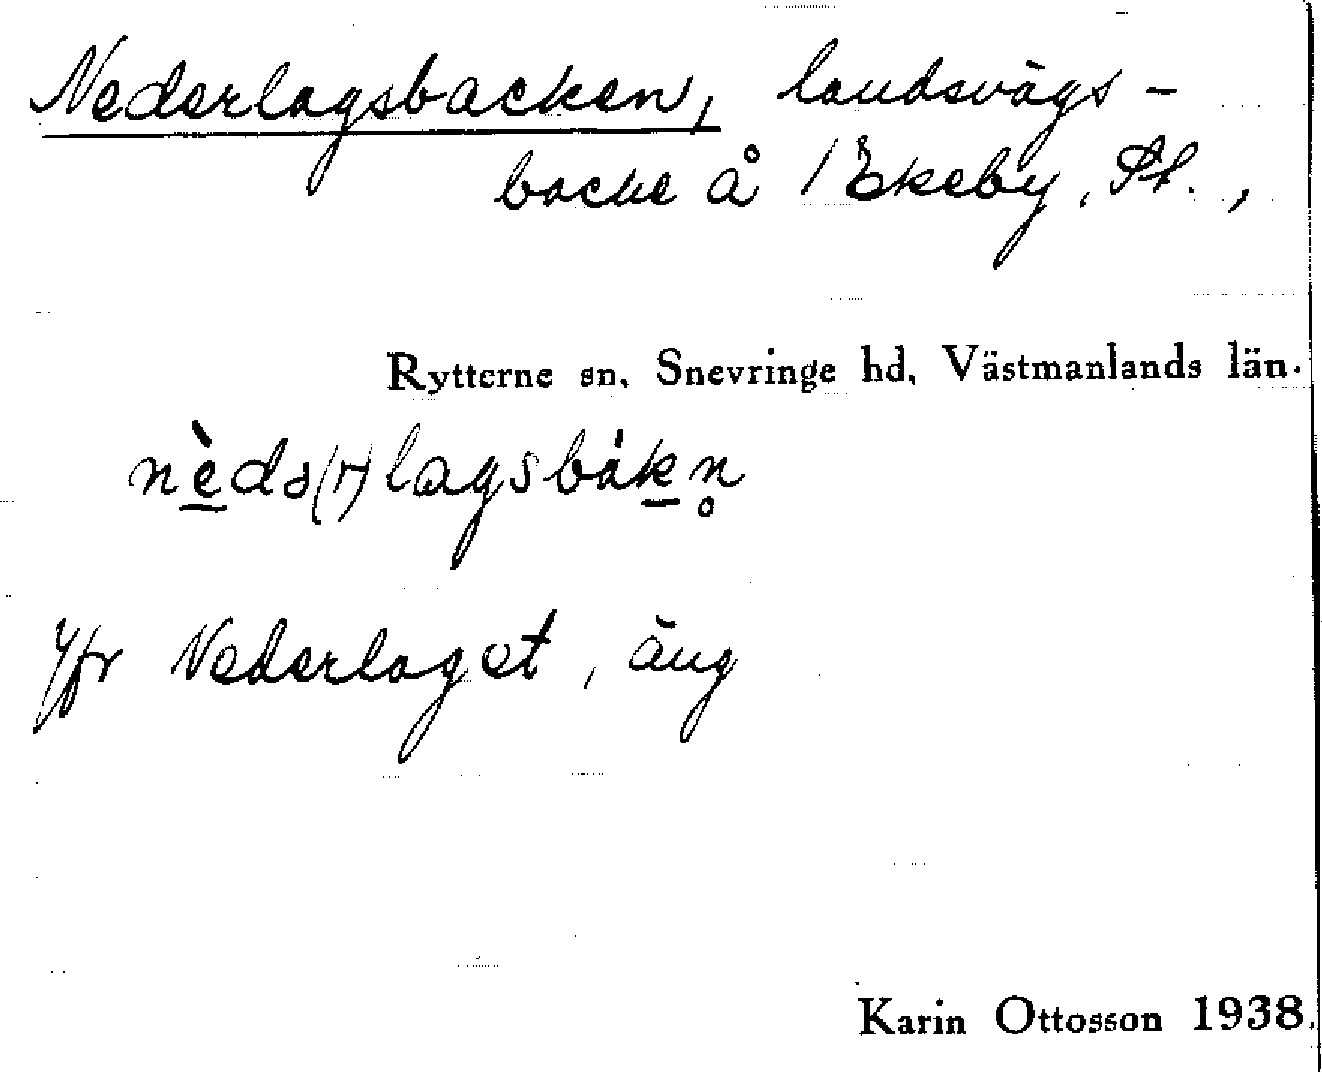 Nederlagsbacken, landsvägs-
backe å /Ekeby, St.,
Rytterne sn, Snevringe hd, Västmanlands län.
nèdə(r)lagsbákn̥
Jfr Nederlaget, äng
Karin Ottosson 1938.